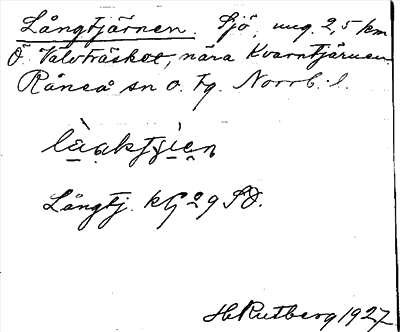 Långtjärnen. Sjö, ung. 2,5 km
Ö. Valvträsket, nära Kvarntjärnen
Råneå sn o. tg. Norrb. l.
làaktjien
Långtj. kG 29 SO.
H. Rutberg 1927